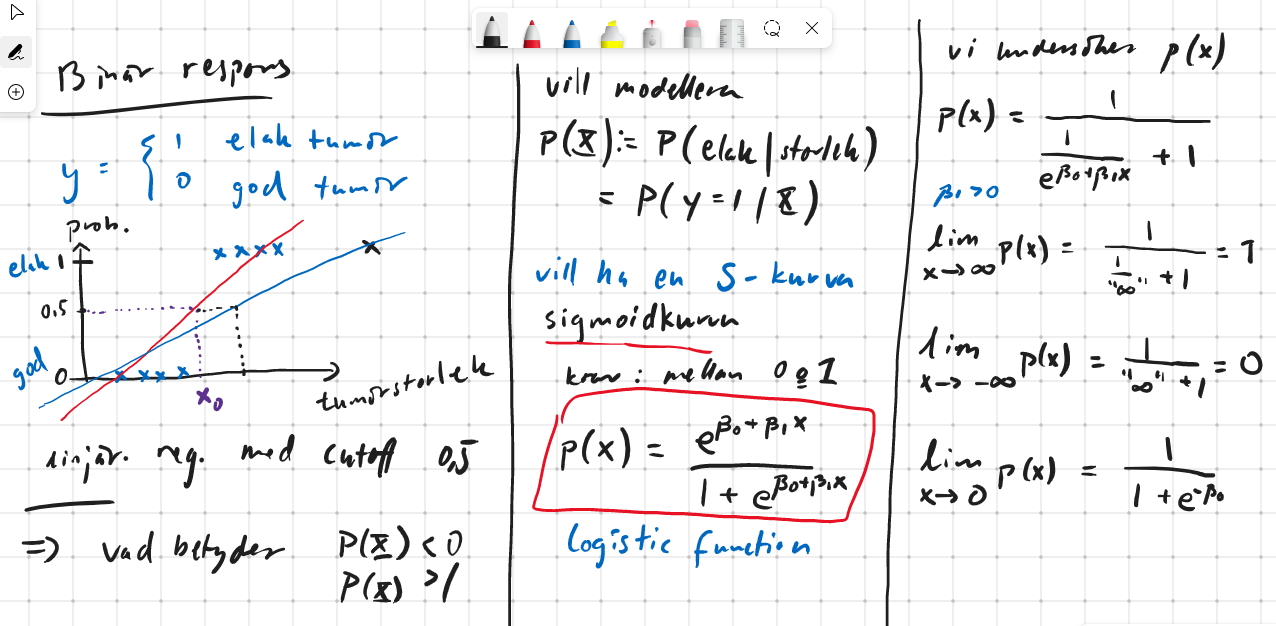 Binär respons
y = { 1 elak tumör
0 god tumör
prob.
elak 1
0,5
god 0
x₀
tumörstorlek
Linjär. reg. med cutoff 0,5
=> vad betyder P(X) < 0
P(X) > 1
vill modellera
P(X) := P(elak | storlek)
= P(y = 1 | X)
vill ha en S-kurva
sigmoidkurva
krav: mellan 0 & 1
p(x) = e^(β₀+β₁x) / (1 + e^(β₀+β₁x))
logistic function
vi undersöker p(x)
p(x) = 1 / (1/e^(β₀+β₁x) + 1)
β₁ > 0
lim x→∞ p(x) = 1 / (1/"∞" + 1) = 1
lim x→-∞ p(x) = 1 / ("∞" + 1) = 0
lim x→0 p(x) = 1 / (1 + e^-β₀)